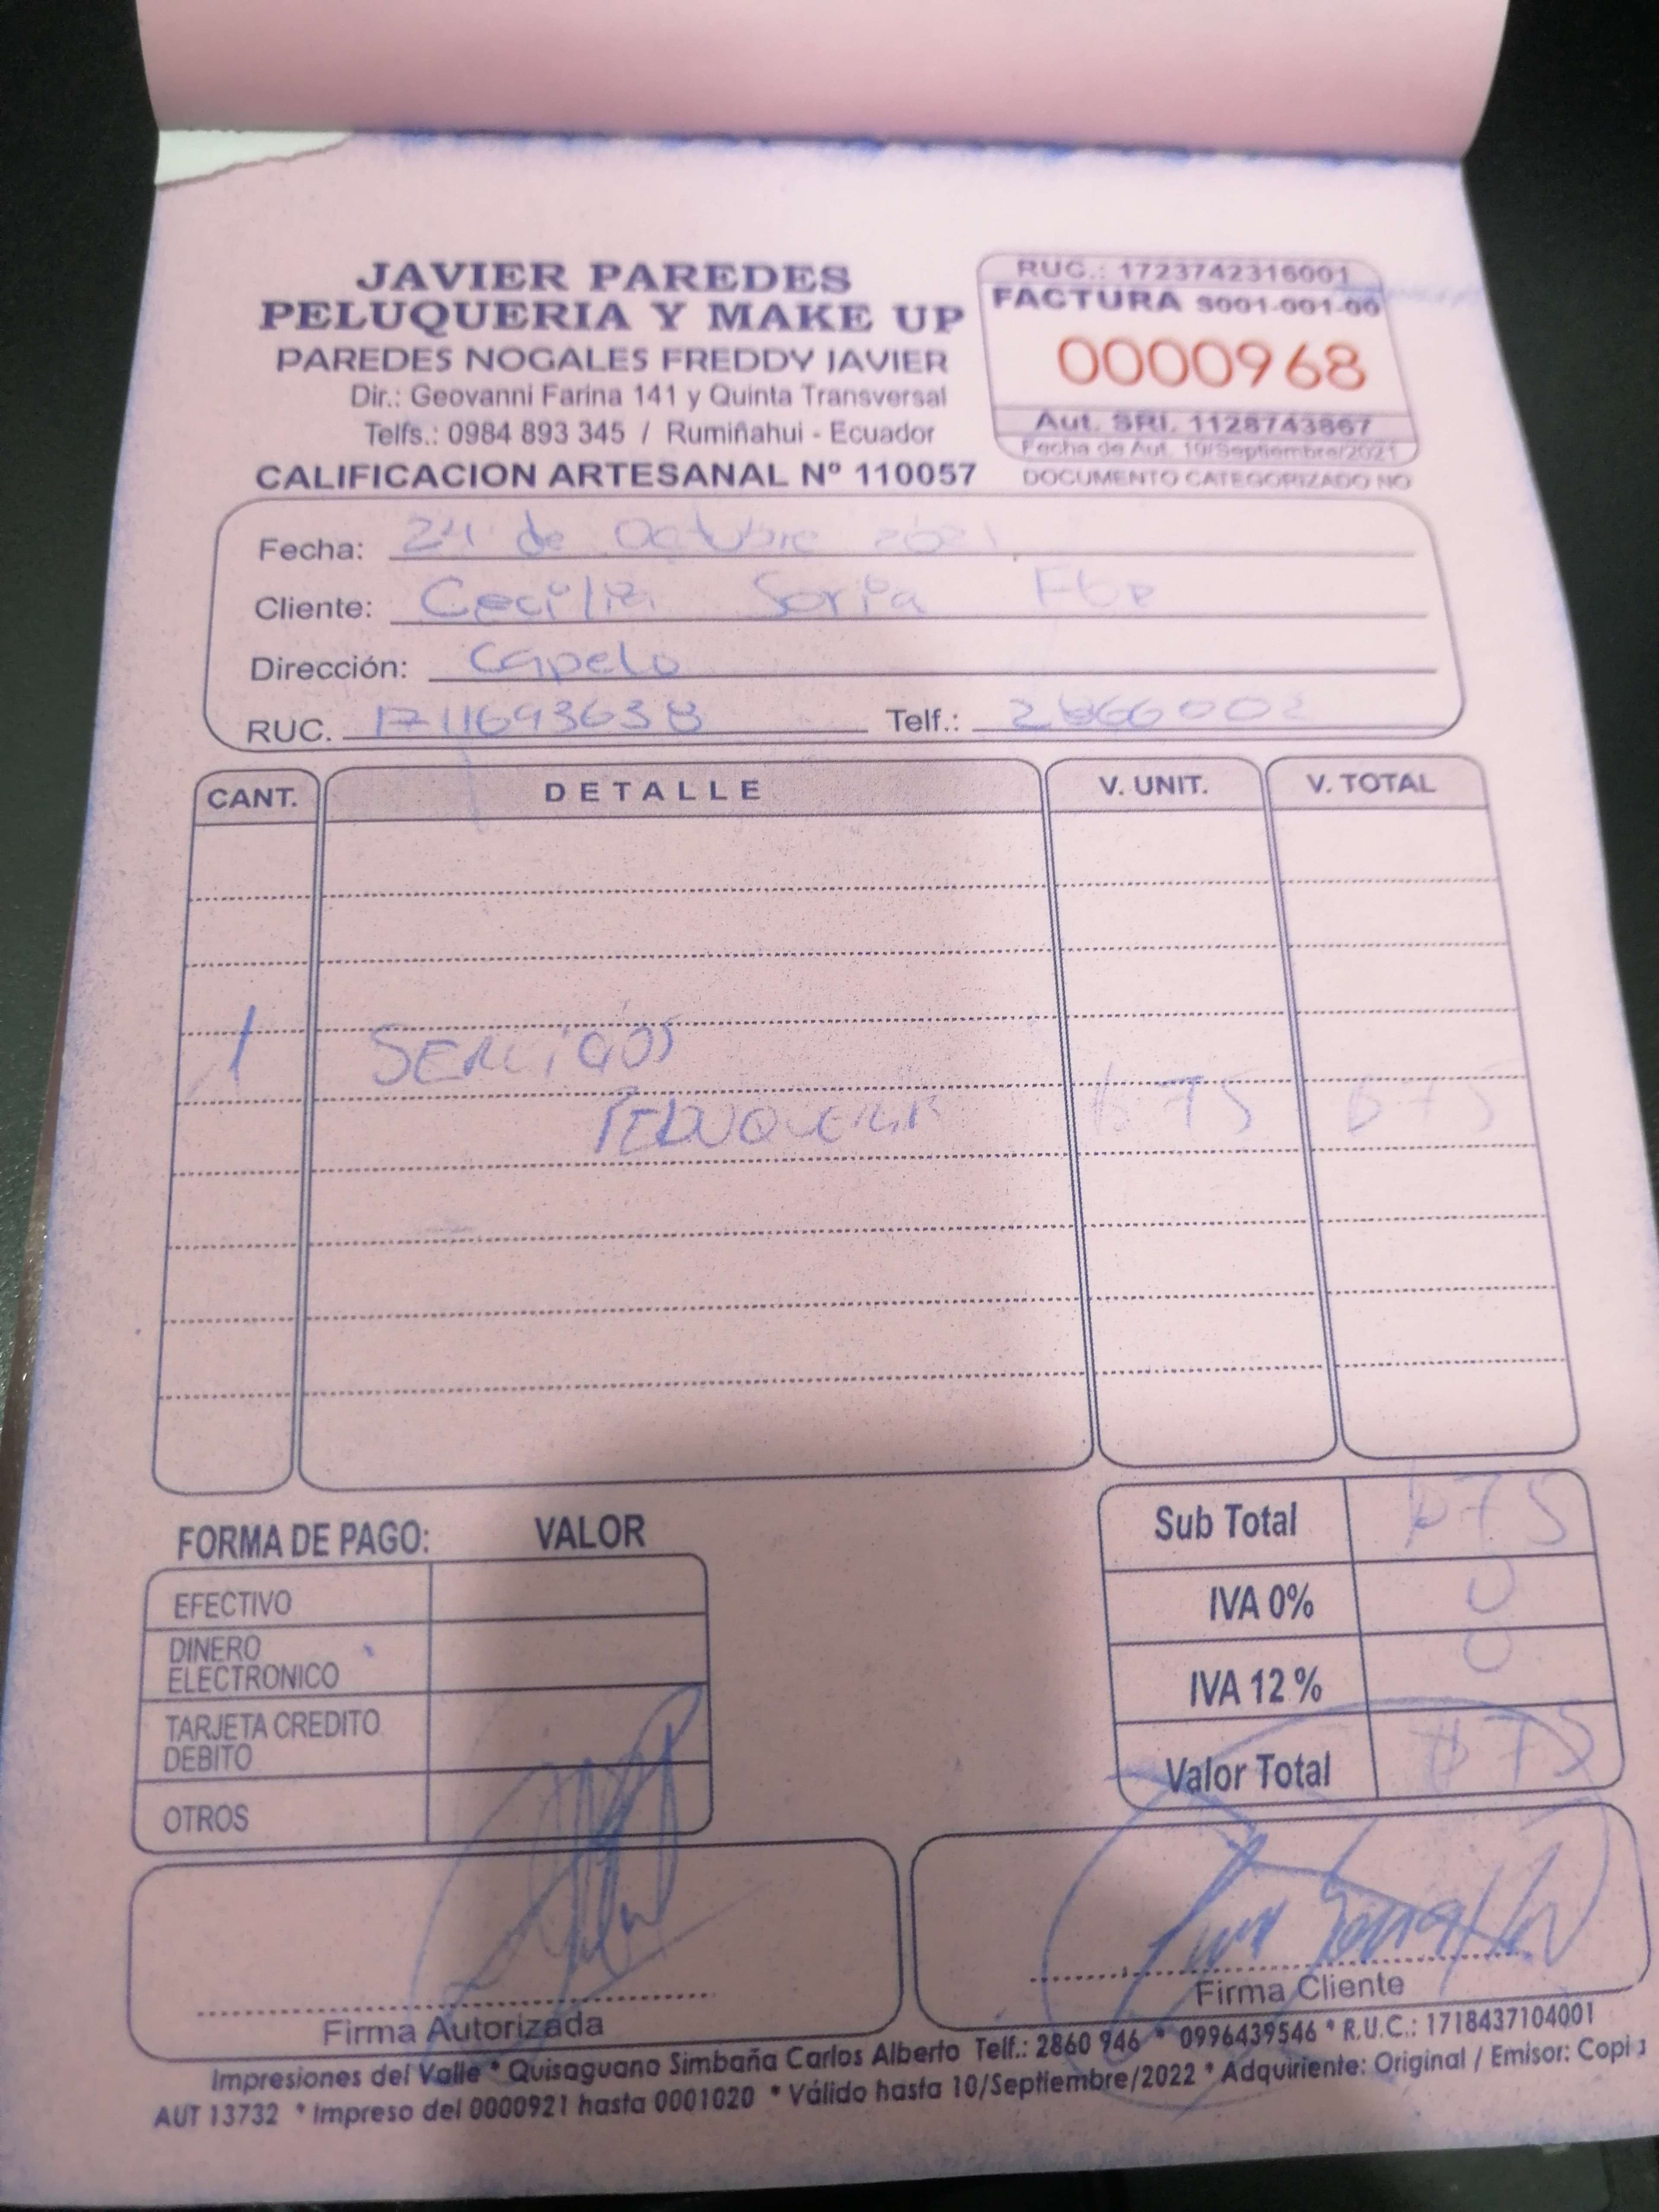 JAVIER PAREDES
PELUQUERIA Y MAKE UP
PAREDES NOGALES FREDDY JAVIER
Dir.: Geovanni Farina 141 y Quinta Transversal
Telfs.: 0984 893 345 / Rumiñahui - Ecuador
CALIFICACION ARTESANAL Nº 110057
RUC.: 1723742316001
FACTURA S001-001-00
0000968
Aut. SRI. 1128743867
Fecha de Aut. 10/Septiembre/2021
DOCUMENTO CATEGORIZADO NO
Fecha: 24 de Octubre 2021
Cliente: Cecilia Soria
Dirección: Capelo
RUC. 1711693638 Telf.: 2866002
CANT. DETALLE V. UNIT. V. TOTAL
1 SERVICIOS
PELUQUERIA $75 $75
Sub Total $75
IVA 0% 0
IVA 12 % 0
Valor Total $75
FORMA DE PAGO: VALOR
EFECTIVO
DINERO
ELECTRONICO
TARJETA CREDITO
DEBITO
OTROS
Firma Autorizada
Firma Cliente
Impresiones del Valle * Quisaguano Simbaña Carlos Alberto Telf.: 2860 946 * 0996439546 * R.U.C.: 1718437104001
AUT 13732 * Impreso del 0000921 hasta 0001020 * Válido hasta 10/Septiembre/2022 * Adquiriente: Original / Emisor: Copia